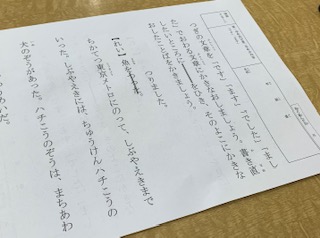 つぎの文章を「です」「ます」「でした」「まし
た」でおわる文章にかきなおしましょう。書き直
したいところに――をひき、そのよこにかきな
おしたことばをかきましょう。
つりました。
【れい】魚をつります。
ちかてつ東京メトロにのって、しぶやえきまで
いった。しぶやえきには、ちゅうけんハチこうの
犬のぞうがあった。ハチこうのぞうは、まちあわ